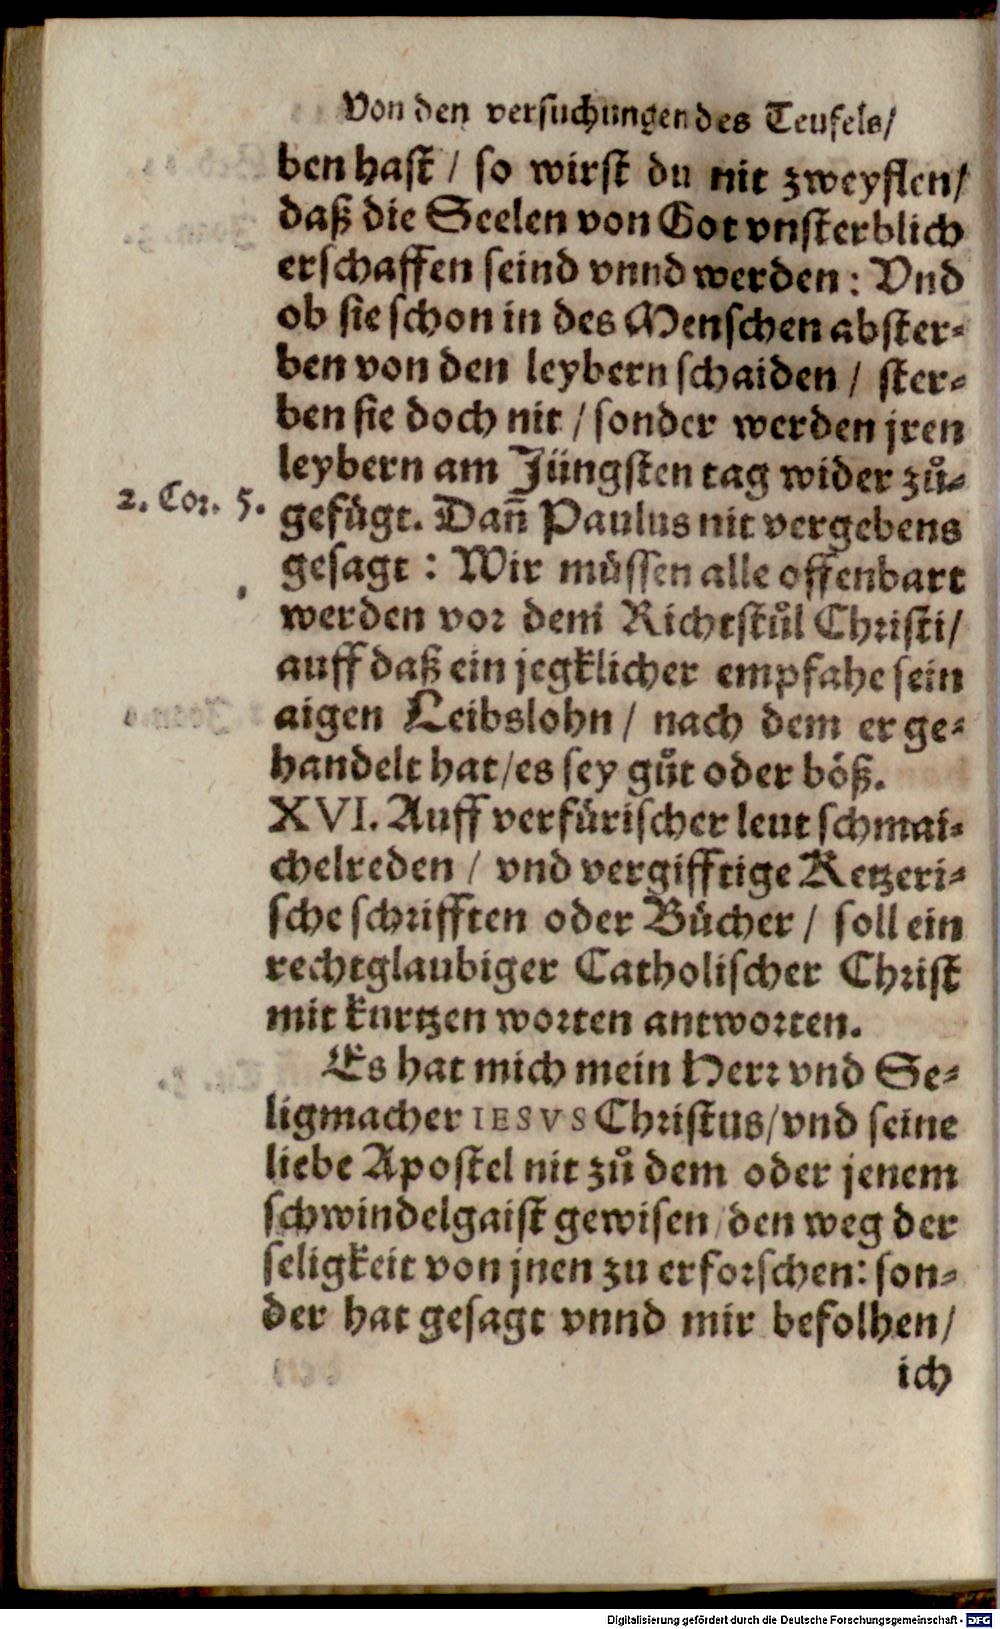 Von den versuchungen des Teufels/
ben hast / so wirst du nit zweyflen/
daß die Seelen von Got vnsterblich
erschaffen seind vnnd werden: Vnd
ob sie schon in des Menschen abster-
ben von den leybern schaiden / ster-
ben sie doch nit / sonder werden jren
leybern am Jüngsten tag wider zů-
2. Cor. 5. gefügt. Dañ Paulus nit vergebens
gesagt : Wir müssen alle offenbart
werden vor dem Richtstůl Christi/
auff daß ein jegklicher empfahe sein
aigen Leibslohn / nach dem er ge-
handelt hat/es sey gůt oder böß.
XVI. Auff verfürischer leut schmai-
chelreden / vnd vergifftige Ketzeri-
sche schrifften oder Bücher / soll ein
rechtglaubiger Catholischer Christ
mit kurtzen worten antworten.
Es hat mich mein Herr vnd Se-
ligmacher IESVS Christus/vnd seine
liebe Apostel nit zů dem oder jenem
schwindelgaist gewisen/den weg der
seligkeit von jnen zu erforschen: son-
der hat gesagt vnnd mir befolhen/
ich
Digitalisierung gefördert durch die Deutsche Forschungsgemeinschaft - DFG